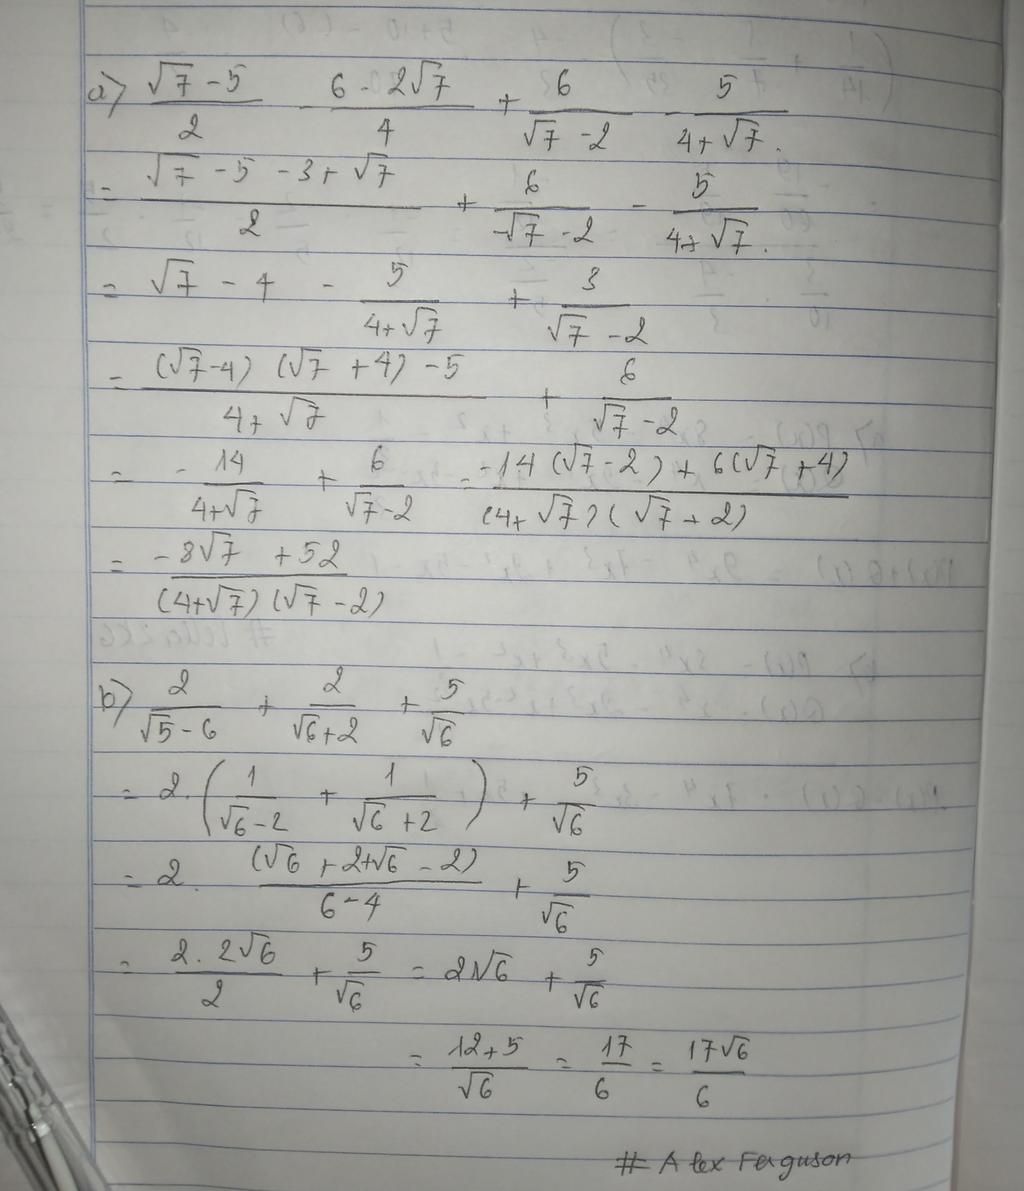 a) (√7 - 5)/2 - (6 - 2√7)/4 + 6/(√7 - 2) - 5/(4 + √7).
= (√7 - 5 - 3 + √7)/2 + 6/(√7 - 2) - 5/(4 + √7).
= √7 - 4 - 5/(4 + √7) + 3/(√7 - 2)
= ((√7 - 4) (√7 + 4) - 5)/(4 + √7) + 6/(√7 - 2)
= - 14/(4 + √7) + 6/(√7 - 2) = (-14 (√7 - 2) + 6(√7 + 4))/((4 + √7) (√7 + 2))
= (-8√7 + 52)/((4 + √7) (√7 - 2))
b) 2/(√5 - 6) + 2/(√6 + 2) + 5/√6
= 2. (1/(√6 - 2) + 1/(√6 + 2)) + 5/√6
= 2. (√6 + 2 + √6 - 2)/(6 - 4) + 5/√6
= (2. 2√6)/2 + 5/√6 = 2√6 + 5/√6
= (12 + 5)/√6 = 17/6 = 17√6/6
# Alex Ferguson